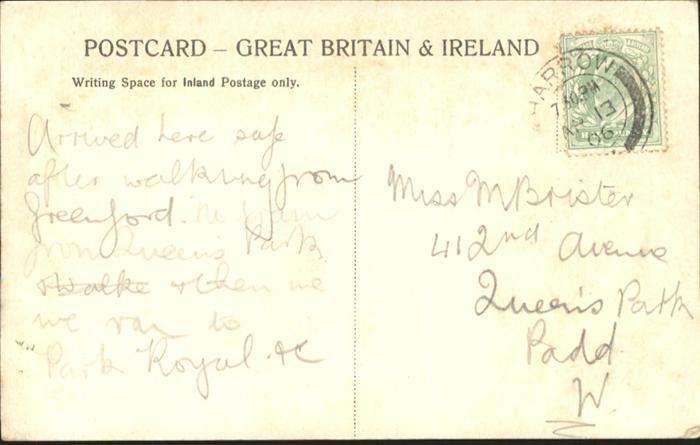 POSTCARD – GREAT BRITAIN & IRELAND
Writing Space for Inland Postage only.
HARROW
7.40PM
AP 13
06
Arrived here safe
after walking from
Greenford. No train
from Queen's Park
walke & then we
we ran to
Park Royal. &c
Miss M Brister
41 2nd Avenue
Queen's Park
Padd.
W.